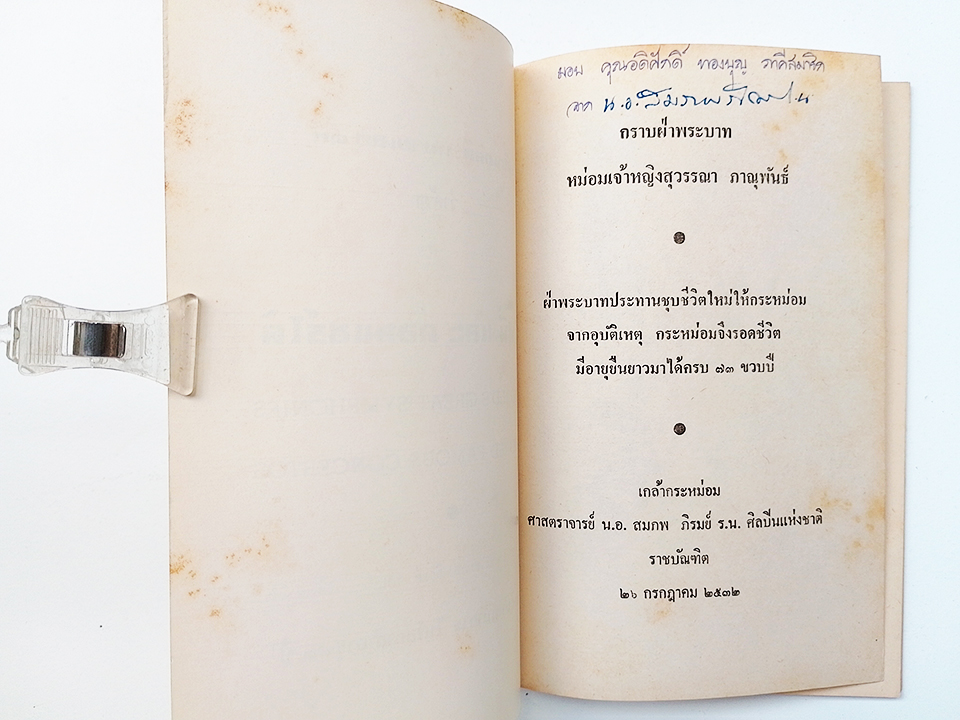 มอบ คุณอดิศักดิ์ ทองบุญ ภาคีสมาชิก
จาก น.อ.
กราบฝ่าพระบาท
หม่อมเจ้าหญิงสุวรรณา ภาณุพันธ์
ฝ่าพระบาทประทานชุบชีวิตใหม่ให้กระหม่อม
จากอุบัติเหตุ กระหม่อมจึงรอดชีวิต
มีอายุยืนยาวมาได้ครบ ๗๓ ขวบปี
เกล้ากระหม่อม
ศาสตราจารย์ น.อ. สมภพ ภิรมย์ ร.น. ศิลปินแห่งชาติ
ราชบัณฑิต
๒๖ กรกฎาคม ๒๕๓๒